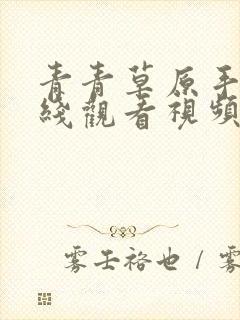 青青草原手
綫觀看視頻
雾壬裕也 / 雾